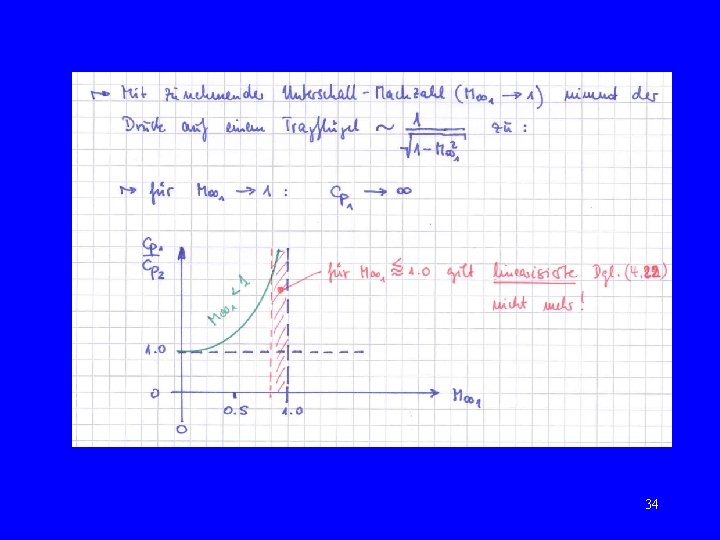 ↦ Mit zunehmender Unterschall-Machzahl (M∞₁ → 1) nimmt der
Druck auf einem Tragflügel ~ 1/√(1-M∞₁²) zu :
↦ für M∞₁ → 1 : Cp₁ → ∞
Cp₁/Cp₂
für M∞₁ ≲≈ 1.0 gilt linearisierte Dgl. (4.22)
nicht mehr!
M∞₁ < 1
1.0
0
0.5 1.0 M∞₁
0
34